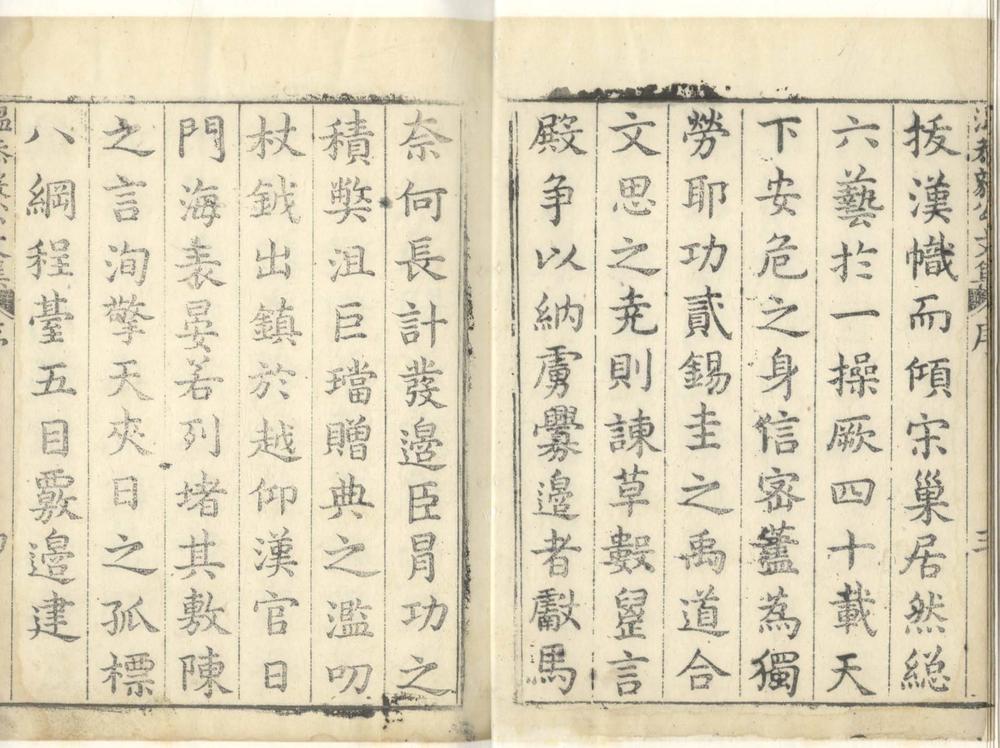 拔漢幟而傾宋巢居然総
六藝扵一操厥四十載天
下安危之身信宻蓋為獨
勞耶功貳錫圭之禹道合
文思之尭則諫草數言
殿争以納虜釁邉者獻馬
奈何長計發邉臣冐功之
積獘沮巨璫贈典之濫叨
杖鉞出鎮於越仰漢官日
門海表晏若列堵其敷陳
之言洵擎天夾日之孤標
八綱程臺五目覈邉建